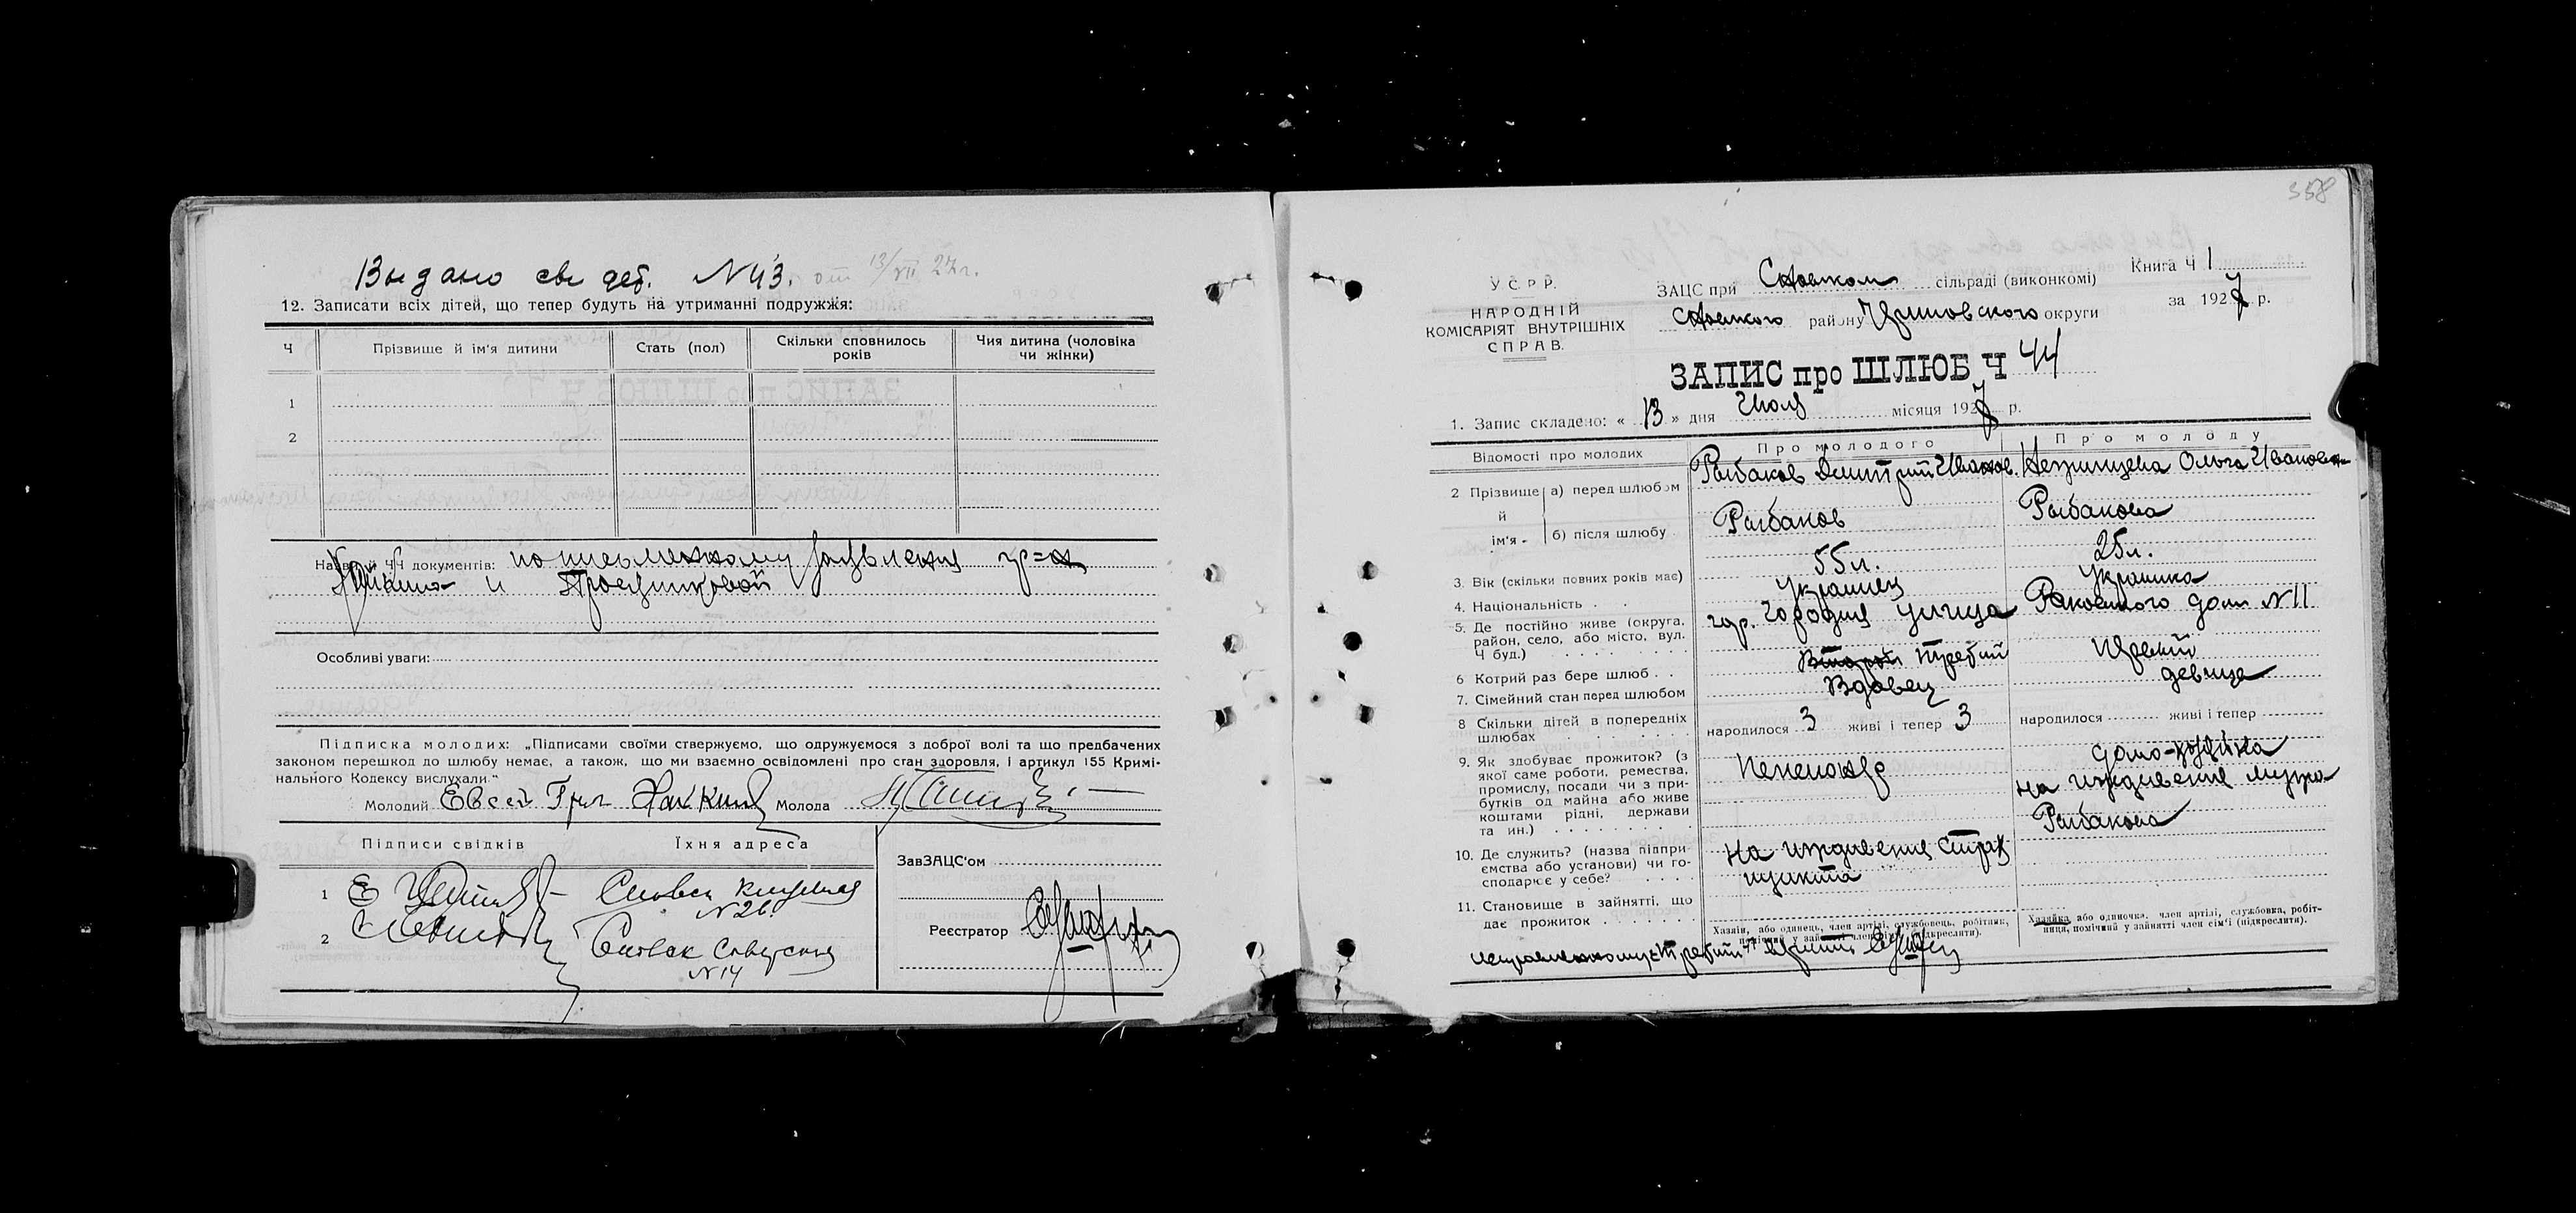 Выдано свидет. N43. от 13/VII 27 г.
12. Записати всіх дітей, що тепер будуть на утриманні подружжя:
Ч Прізвище й ім'я дитини Стать (пол) Скільки сповнилось років Чия дитина (чоловіка чи жінки)
1
2
Назва й ЧЧ документів: по письменному заявлению гр-н
и
Особливі уваги:
Підписка молодих: „Підписами своїми стверджуємо, що одружуємося з доброї волі та що предбачених
законом перешкод до шлюбу немає, а також, що ми взаємно освідомлені про стан здоров'я, і артикул 155 Кримі-
нального Кодексу вислухали."
Молодий Евсей Молода
Підписи свідків Їхня адреса
1 Е
N 26.
2
Советская
N 14
ЗавЗАЦС'ом
Реєстратор
358
У.С.Р.Р.
НАРОДНІЙ
КОМІСАРІЯТ ВНУТРІШНІХ
СПРАВ.
ЗАЦС при Сновском сільраді (виконкомі) Книга Ч 1
Сновского району округи за 1927 р.
ЗАПИС про ШЛЮБ Ч 44
1. Запис складено: « 13 » дня Июля місяця 1927 р.
Відомості про молодих Про молодого Про молоду
2 Прізвище й ім'я а) перед шлюбом Рыбаков Дмитрий Иванов. Ольга Ивановна
б) після шлюбу Рыбаков Рыбакова
3. Вік (скільки повних років має) 55 л. 25 л.
4. Національність Украинец Украинка
5. Де постійно живе (округа, район, село, або місто, вул. Ч буд.) гор. Городня улица Раковского дом N 11
6 Котрий раз бере шлюб Второй третий Первый
7. Сімейний стан перед шлюбом Вдовец девица
8 Скільки дітей в попередніх шлюбах народилося 3 живі і тепер 3 народилося живі і тепер
9. Як здобуває прожиток? (з якої саме роботи, ремества, промислу, посади чи з прибутків од майна або живе коштами рідні, держави та ин.) Пенсионер домо-хозяйка
на иждивении мужа
Рыбакова
10. Де служить? (назва підприємства або установи) чи господарює у себе? На иждивении страх
пункта
11. Становище в зайнятті, що дає прожиток
Хазяїн, або одинець, член артілі, службовець, робітник, помічний у зайнятті член сім'ї (підкреслити).
Хазяйка або одиночка, член артілі, службовка, робітниця, помічний у зайнятті член сім'ї (підкреслити).
исправленному „третий"